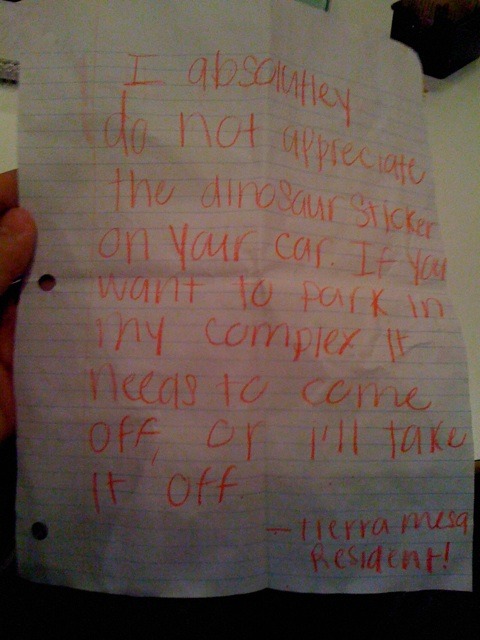 I absolutley
do not appreciate
the dinosaur sticker
on your car. If you
want to park in
my complex it
needs to come
off, or i'll take
it off
- Tierra mesa
Resident!